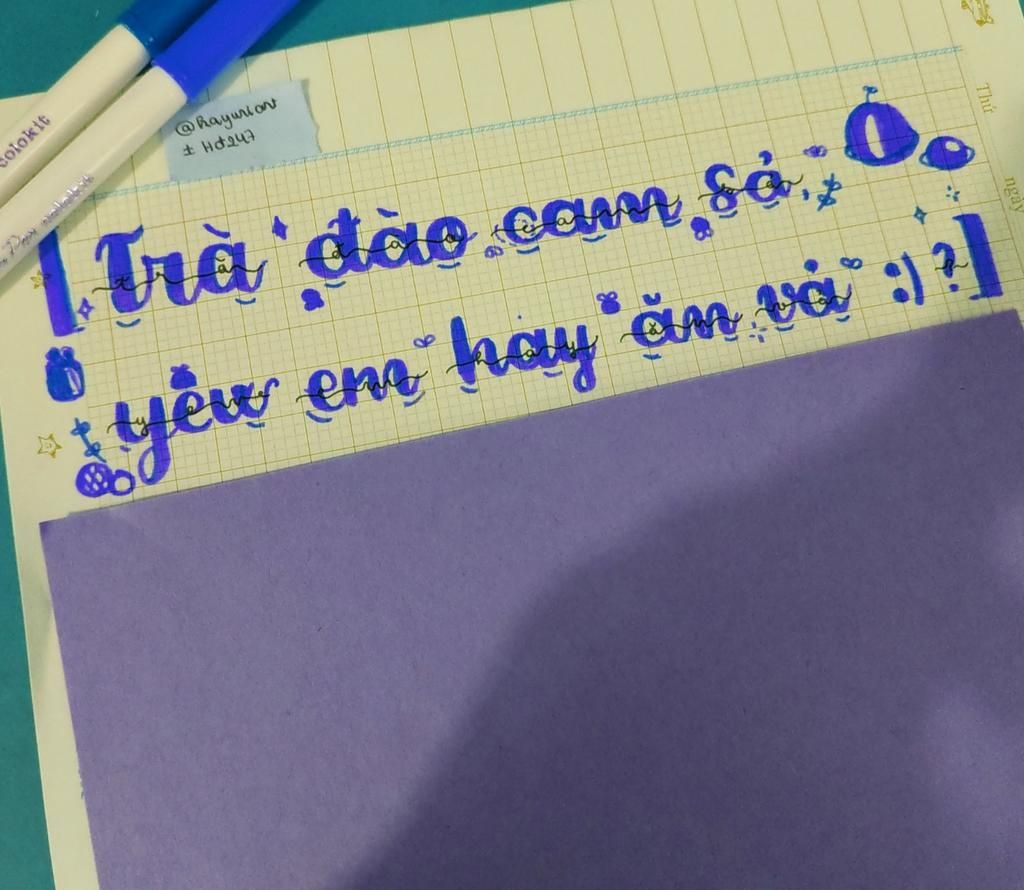 colokit
@hayuniart
± Hđ247
[Trà đào cam sả,
yêu em hay ăn vả :) ?]
Thứ
ngày